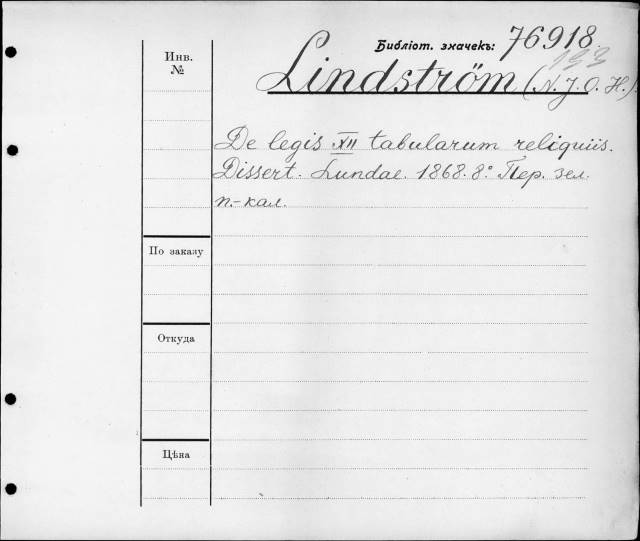 Инв.
№
Библіот. значекъ: 76918
193
Lindström (N. J. O. H.)
De legis XII tabularum reliquiis.
Dissert. Lundae. 1868. 8° Пер. зел.
п.-кал.
По заказу
Откуда
Цѣна